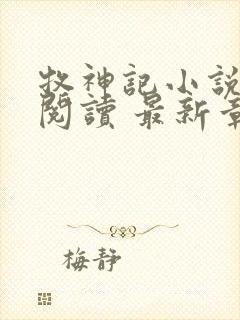 牧神記小說
閱讀 最新章
梅靜